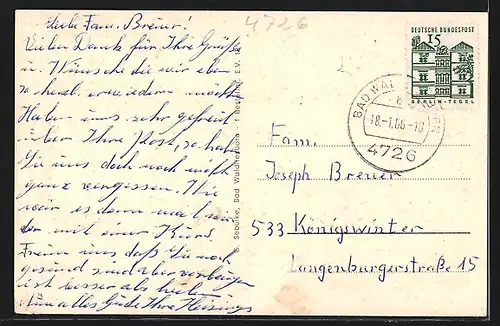 4726
Liebe Fam. Breuer!
Vielen Dank für Ihre Grüße
u. Wünsche die wir eben
so herzl. erwiedern möchte
Haben uns sehr gefreut
über Ihre Post, so habe
Sie uns doch noch nicht
ganz vergessen. Wie
wäre es denn mal wie
der mit einer Kur?
Freuen uns daß Sie noch
gesund sind aber vorbeugen
ist besser als heilen
Nun alles Gute Ihre
Bad Waldliesborn
DEUTSCHE BUNDESPOST
15
BERLIN-TEGEL
BAD WALDLIESBORN
b
18.-1.66-18
4726
Fam.
Joseph Breuer
533 Königswinter
Langenburgerstraße 15